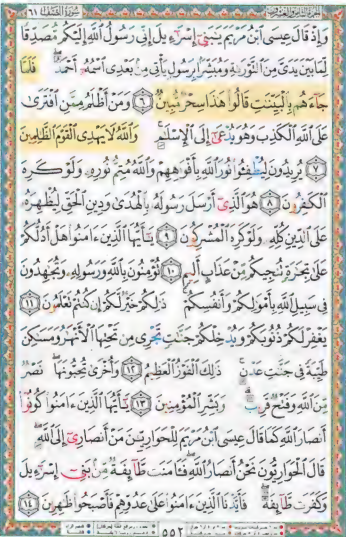 سُورَةُ الصَّفِّ ٦١
وَإِذْ قَالَ عِيسَى ابْنُ مَرْيَمَ يَٰبَنِىٓ إِسْرَٰٓءِيلَ إِنِّى رَسُولُ اللَّهِ إِلَيْكُم مُّصَدِّقًا
لِّمَا بَيْنَ يَدَىَّ مِنَ التَّوْرَىٰةِ وَمُبَشِّرًۢا بِرَسُولٍ يَأْتِى مِنۢ بَعْدِى اسْمُهُۥٓ أَحْمَدُ ۖ فَلَمَّا
جَآءَهُم بِالْبَيِّنَٰتِ قَالُوا۟ هَٰذَا سِحْرٌ مُّبِينٌ ٦ وَمَنْ أَظْلَمُ مِمَّنِ افْتَرَىٰ
عَلَى اللَّهِ الْكَذِبَ وَهُوَ يُدْعَىٰٓ إِلَى الْإِسْلَٰمِ ۚ وَاللَّهُ لَا يَهْدِى الْقَوْمَ الظَّٰلِمِينَ
٧ يُرِيدُونَ لِيُطْفِـُٔوا۟ نُورَ اللَّهِ بِأَفْوَٰهِهِمْ وَاللَّهُ مُتِمُّ نُورِهِۦ وَلَوْ كَرِهَ
الْكَٰفِرُونَ ٨ هُوَ الَّذِىٓ أَرْسَلَ رَسُولَهُۥ بِالْهُدَىٰ وَدِينِ الْحَقِّ لِيُظْهِرَهُۥ
عَلَى الدِّينِ كُلِّهِۦ وَلَوْ كَرِهَ الْمُشْرِكُونَ ٩ يَٰٓأَيُّهَا الَّذِينَ ءَامَنُوا۟ هَلْ أَدُلُّكُمْ
عَلَىٰ تِجَٰرَةٍ تُنجِيكُم مِّنْ عَذَابٍ أَلِيمٍ ١٠ تُؤْمِنُونَ بِاللَّهِ وَرَسُولِهِۦ وَتُجَٰهِدُونَ
فِى سَبِيلِ اللَّهِ بِأَمْوَٰلِكُمْ وَأَنفُسِكُمْ ۚ ذَٰلِكُمْ خَيْرٌ لَّكُمْ إِن كُنتُمْ تَعْلَمُونَ ١١
يَغْفِرْ لَكُمْ ذُنُوبَكُمْ وَيُدْخِلْكُمْ جَنَّٰتٍ تَجْرِى مِن تَحْتِهَا الْأَنْهَٰرُ وَمَسَٰكِنَ
طَيِّبَةً فِى جَنَّٰتِ عَدْنٍ ۚ ذَٰلِكَ الْفَوْزُ الْعَظِيمُ ١٢ وَأُخْرَىٰ تُحِبُّونَهَا ۖ نَصْرٌ
مِّنَ اللَّهِ وَفَتْحٌ قَرِيبٌ ۗ وَبَشِّرِ الْمُؤْمِنِينَ ١٣ يَٰٓأَيُّهَا الَّذِينَ ءَامَنُوا۟ كُونُوٓا۟
أَنصَارَ اللَّهِ كَمَا قَالَ عِيسَى ابْنُ مَرْيَمَ لِلْحَوَارِيِّـۧنَ مَنْ أَنصَارِىٓ إِلَى اللَّهِ ۖ
قَالَ الْحَوَارِيُّونَ نَحْنُ أَنصَارُ اللَّهِ ۖ فَـَٔامَنَت طَّآئِفَةٌ مِّنۢ بَنِىٓ إِسْرَٰٓءِيلَ
وَكَفَرَت طَّآئِفَةٌ ۖ فَأَيَّدْنَا الَّذِينَ ءَامَنُوا۟ عَلَىٰ عَدُوِّهِمْ فَأَصْبَحُوا۟ ظَٰهِرِينَ ١٤
٥٥٢